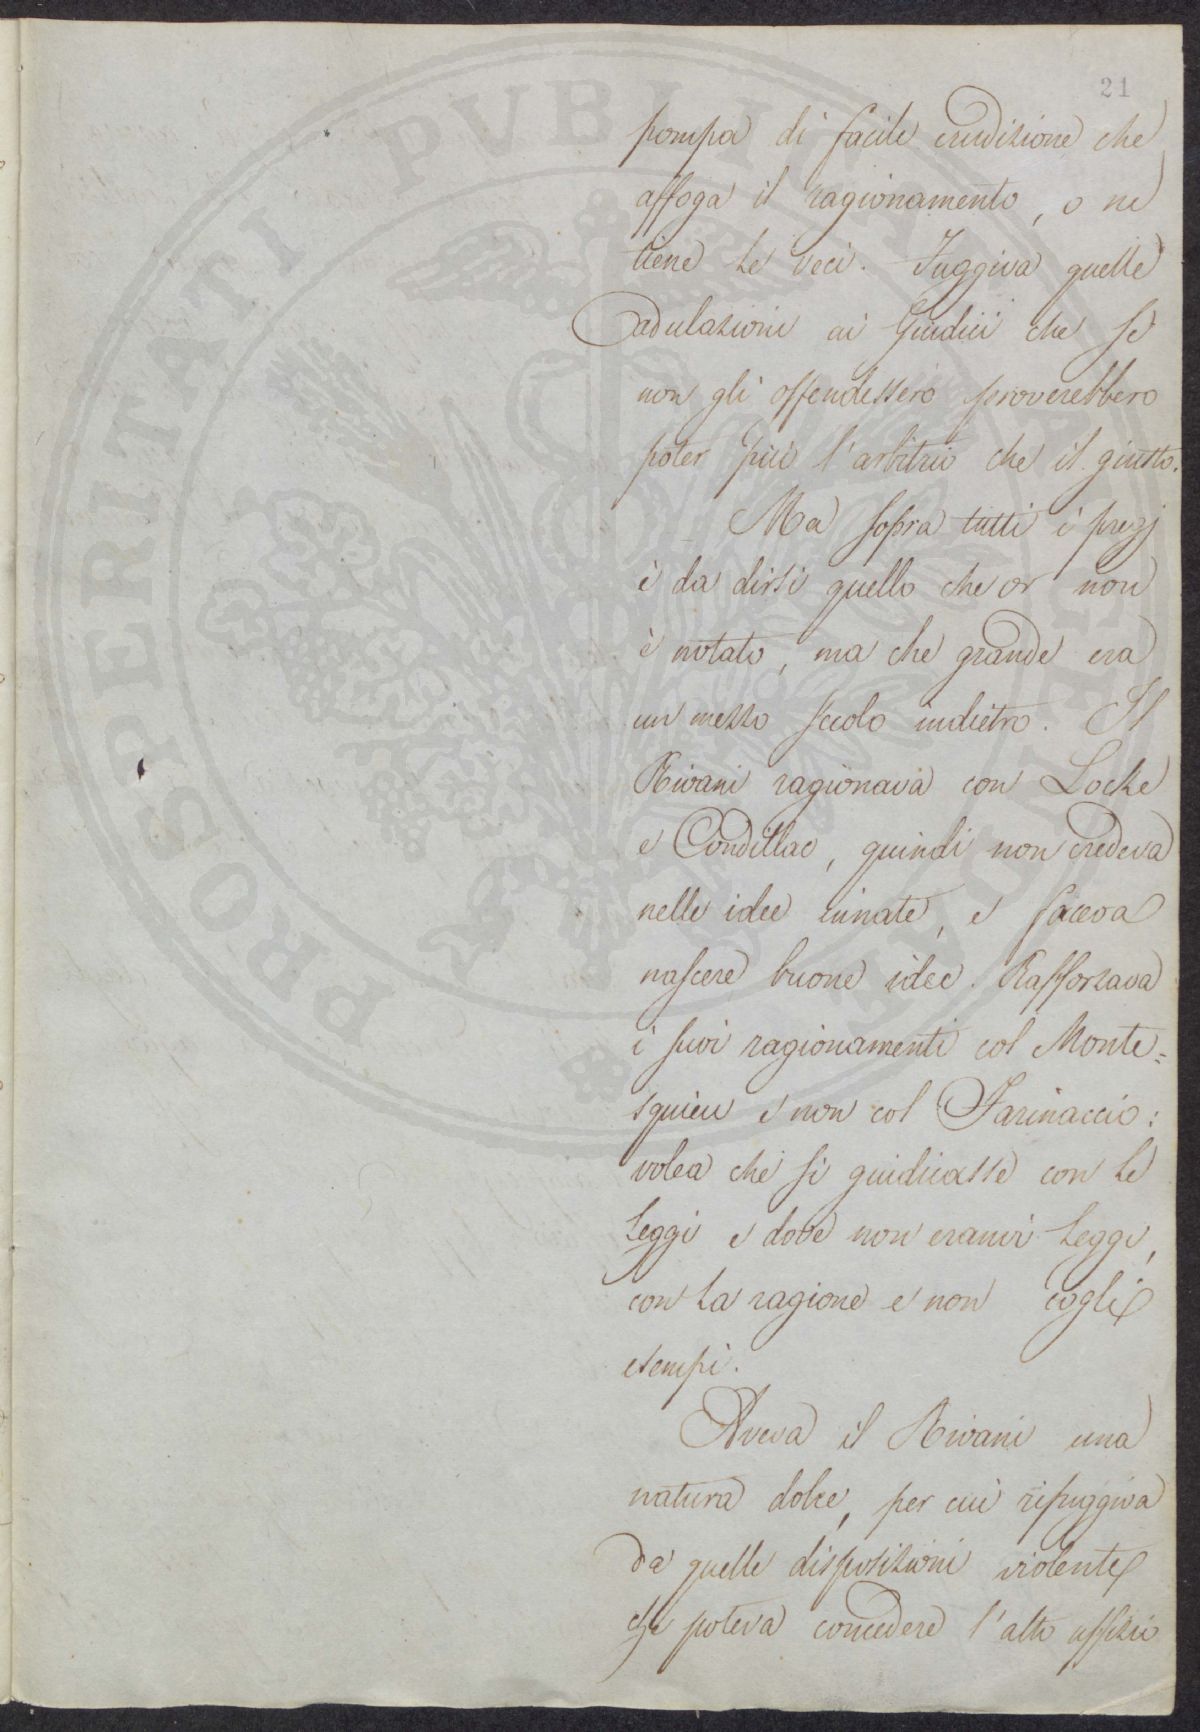 21
pompa di facile erudizione che
affoga il ragionamento, o ne
tiene le veci. Fuggiva quelle
adulazioni ai Giudici che se
non gli offendessero proverebbero
poter più l'arbitrio che il giusto.
Ma sopra tutti i pregj
è da dirsi quello che or non
è notato, ma che grande era
un mezzo secolo indietro. Il
Rivani ragionava con Locke
e Condillac, quindi non credeva
nelle idee innate, e faceva
nascere buone idee. Rafforzava
i suoi ragionamenti col Monte=
squieu e non col Farinaccio:
volea che si giudicasse con le
leggi e dove non eranvi leggi,
con la ragione e non cogli
esempi.
Aveva il Rivani una
natura dolce, per cui rifuggiva
da quelle disposizioni violente
che poteva concedere l'alto uffizio
PROSPERITATI PVBLICAE